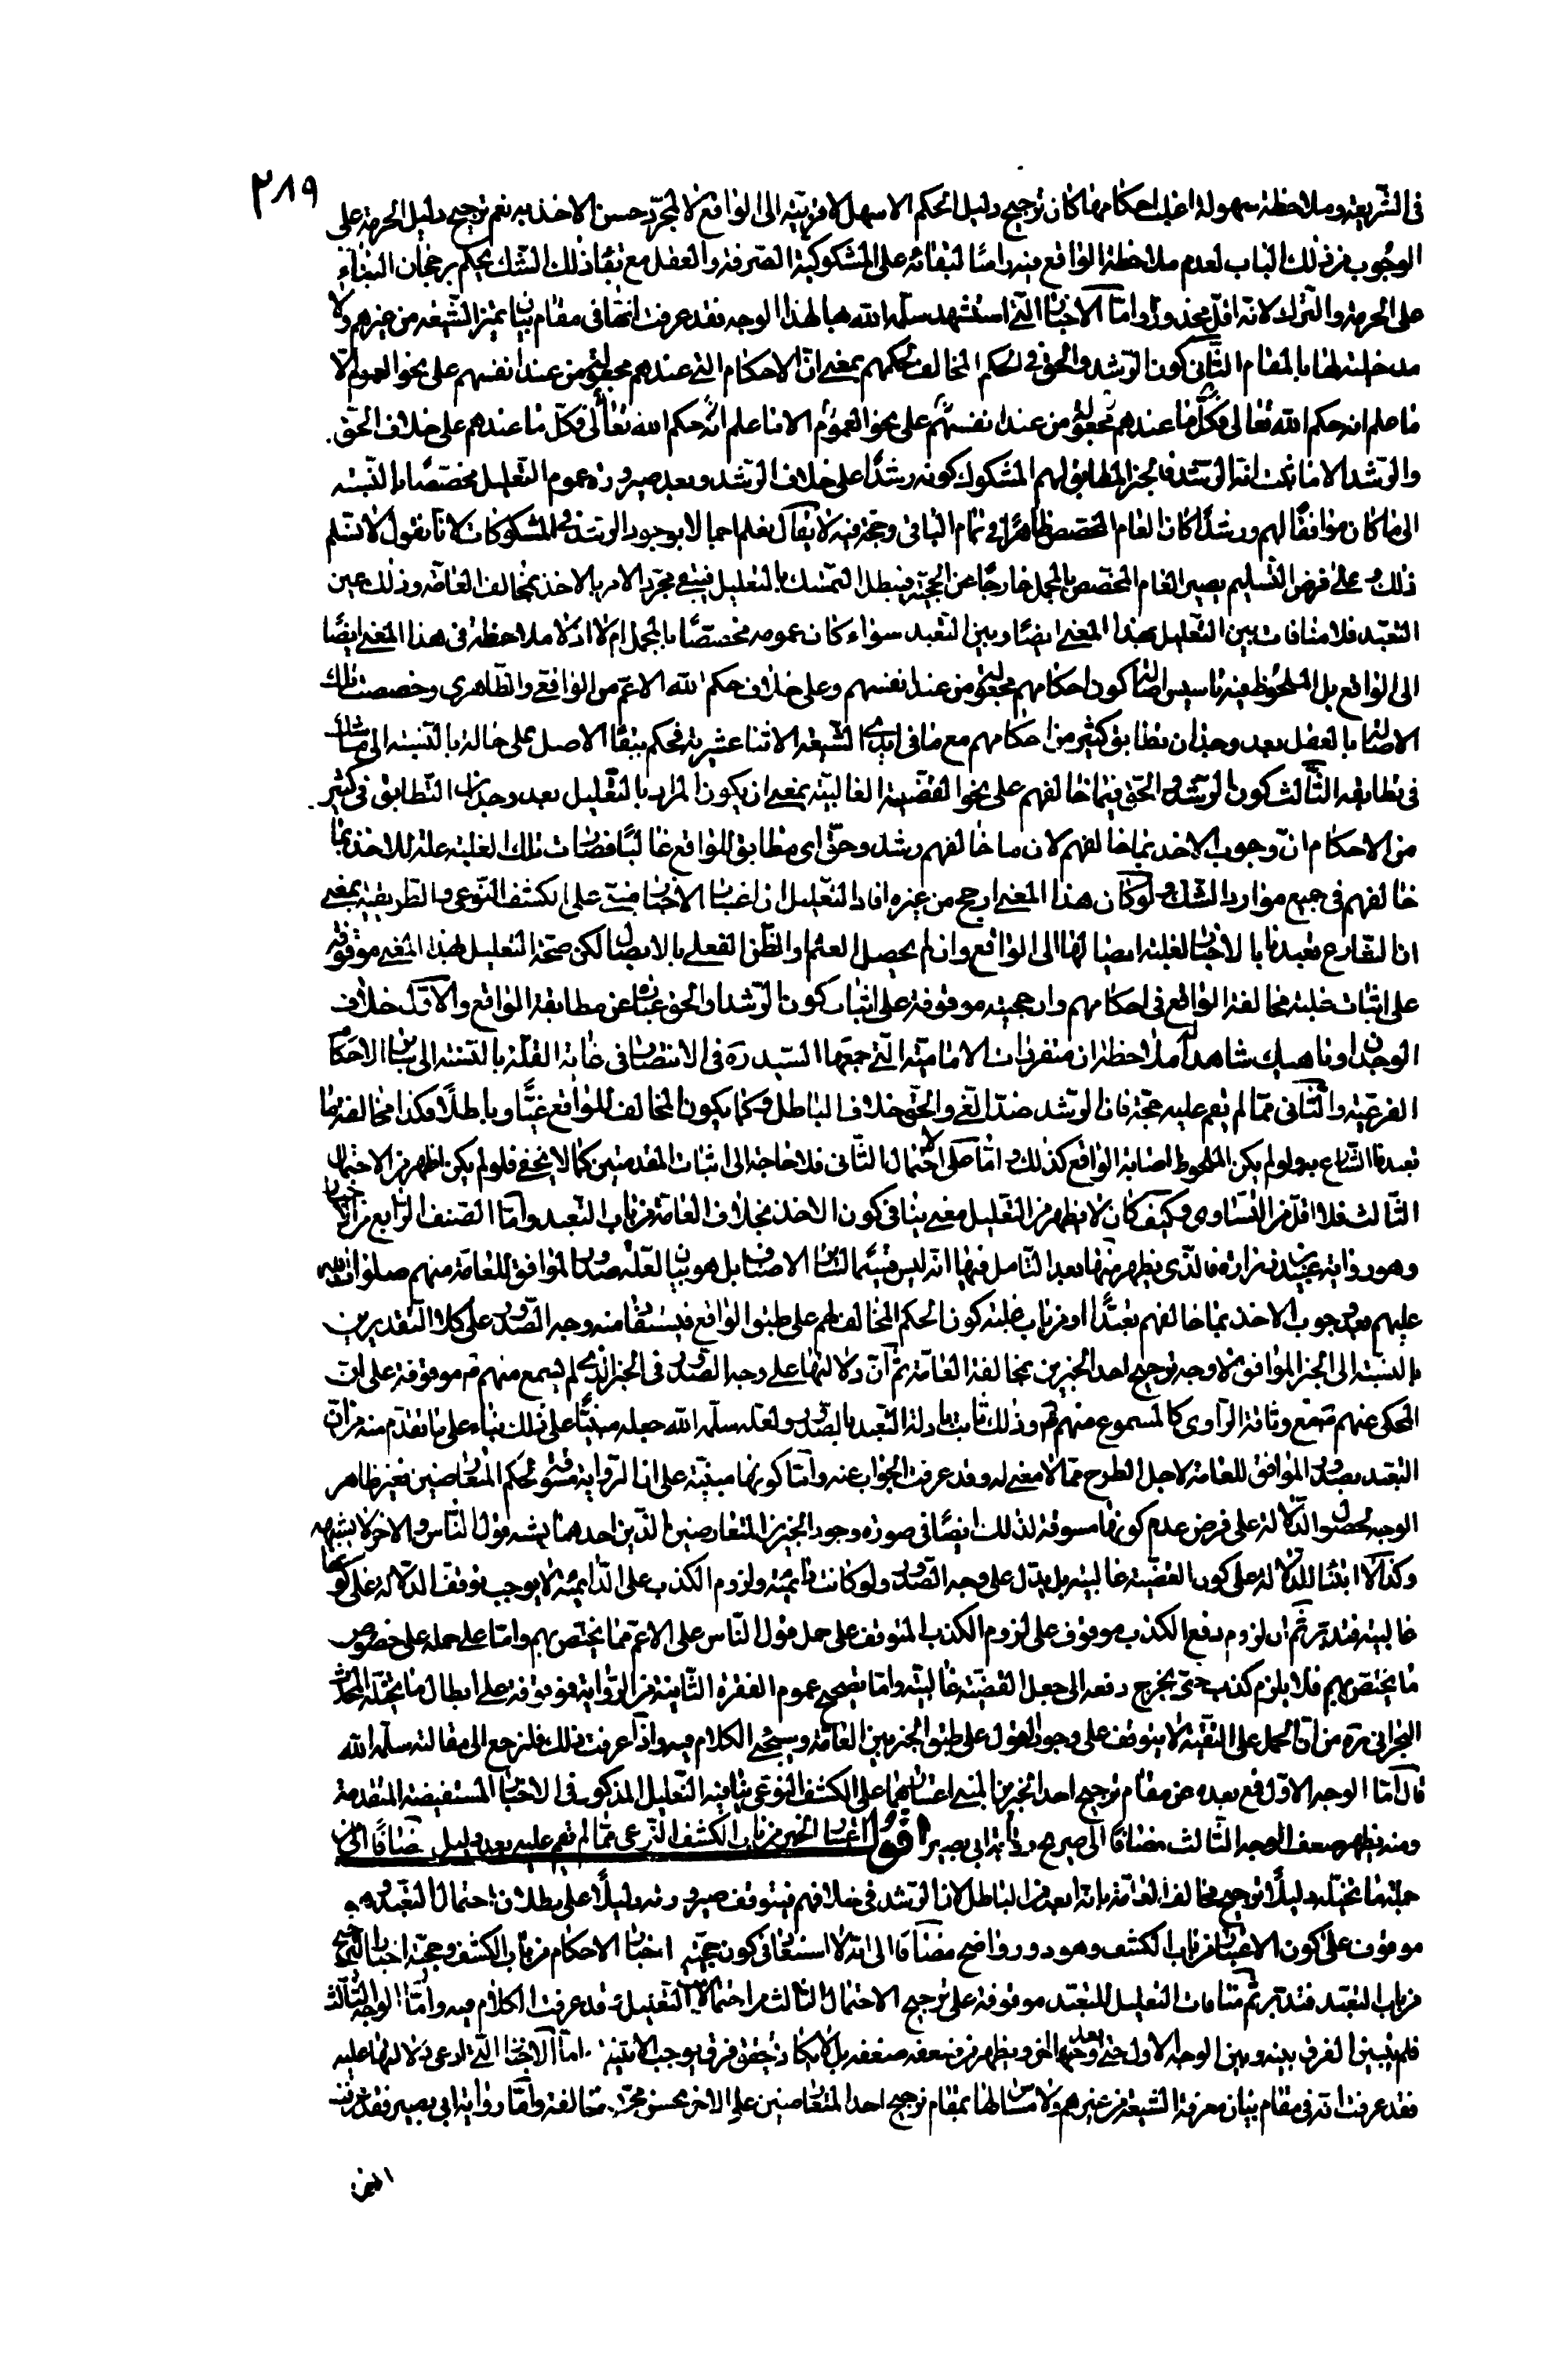 ٢٨٩
فى الشّريعة وملاحظة سهولة اغلب احكامها كان ترجيح دليل الحكم الاسهل لاقربيّته الى الواقع لا لمجرّد حسن الاخذ به نعم ترجيح دليل الحرمة على
الوجوب من ذلك الباب لعدم ملاحظة الواقع فيه راسًا لبقائه على المشكوكية الصّرفة والعقل مع بقاء ذلك الشّك يحكم برجحان البناء
على الحرمة والترك لانه اقلّ محذورًا وامّا الاخبار الّتى استشهد سلّمه الله بها لهذا الوجه فقد عرفت انّها فى مقام بيان تميز الشّيعه من غيرهم ولا
مدخلية لها بالمقام الثّانى كون الرّشد والحق فى الحكم المخالف لحكمهم بمعنى انّ الاحكام التى عندهم مجعولة من عند انفسهم على نحو العموم الّا
ما علم انه حكم الله تعالى فكلّ ما عندهم مجعولة من عند انفسهم على نحو العموم الا ما علم انّه حكم الله تعالى فكلّ ما عندهم على خلاف الحقّ
والرّشد الا ما ثبت انّه الرّشد فالخبر المطابق لهم المشكوك كونه رشدًا على خلاف الرّشد وبعد صيرورة عموم التعليل مخصّصًا بالنّسبة
الى ما كان موافقًا لهم ورشدًا كان العام المخصص ظاهرًا فى تمام الباقى وحجّة فيه لا يقال نعلم اجمالا بوجود الرشد فى المشكوكات لانا نقول لا نسّلم
ذلك وعلى فرض التّسليم يصير العام المخصّص بالمجمل خارجًا عن الحجّيّة فيبطل التمسّك بالتعليل فيبقى مجرّد الامر بالاخذ بمخالف العامّة وذلك عين
التعبّد فلا منافات بين التّعليل بهذا المعنى ايضًا وبين التعبّد سواء كان عمومه مخصّصًا بالمجمل ام لا اذ لا ملاحظة فى هذا المعنى ايضًا
الى الواقع بل الملحوظ فيه تاسيس اصالة كون احكامهم مجعولة من عند انفسهم وعلى خلاف حكم الله الاعمّ من الواقعى والظّاهرى وخصصت تلك
الاصالة بالعقل بعد وجدان تطابق كثير من احكامهم مع ما فى ايدى الشّيعة الاثنا عشرية فحكم ببقاء الاصل على حاله بالنّسبة الى ما شك
فى تطابقه الثّالث كون الرّشد والحق فيما خالفهم على نحو القضيّة الغالبيّة بمعنى ان يكون المراد بالتّعليل بعد وجدان التّطابق فى كثير
من الاحكام انّ وجوب الاخذ بما خالفهم لان ما خالفهم رشد وحقّ اى مطابق للواقع غالبًا فصارت تلك الغلبة علة للاخذ بما
خالفهم فى جميع موارد الشّك ولو كان هذا المعنى ارجح من غيره افاد التعليل ان اعتبار الاخبار مبنى على الكشف النّوعى والطريقية بمعنى
ان الشّارع تعبدنا بالاخبار لغلبة ايصالها الى الواقع وان لم يحصل العلم او الظّن الفعلى بالايصال لكن صحّة التعليل لهذا المعنى موقوفة
على اثبات غلبة مخالفة الواقع فى احكامهم وارجحيته موقوفة على اثبات كون الرّشد والحق عبارة عن مطابقة الواقع والاوّل خلاف
الوجدان وناهيك شاهدا ملاحظة ان متفردات الاماميّة الّتى جمعها السّيد ره فى الانتصار فى غاية القلّة بالنّسبة الى سائر الاحكام
الفرعيّة والثّانى ممّا لم يقم عليه حجّة فان الرّشد ضدّ الغى والحقّ خلاف الباطل وكما يكون المخالف للواقع غيًّا وباطلًا فكذا مخالفة ما
تعبدنا الشّارع به ولو لم يكن الملحوظ اصابة الواقع كذلك وامّا على الاحتمال الثّانى فلا حاجة الى اثبات المقدمتين كما لا يخفى فلو لم يكن اظهر من الاحتمال
الثّالث فلا اقلّ من التّساوى وكيف كان لا يظهر من التعليل معنى ينافى كون الاخذ بخلاف العامّة من باب التعبد وامّا الصّنف الرّابع من الاخبار
وهو رواية عبيد بن زرارة فالّذى يظهر منها بعد التّامل فيها انّه ليس قسيمًا لسائر الاصناف بل هو بيان لعلّة صدور الموافق للعامّة منهم صلوات الله
عليهم بعد وجوب الاخذ بما خالفهم تعبّدًا او من باب غلبة كون الحكم المخالف لهم على طبق الواقع فيستفاد منه وجه الصّدور على كلا التّقديرين
بالنسبة الى الخبر الموافق لا وجه ترجيح احد الخبرين بمخالفة العامّة ثمّ انّ دلالتها على وجه الصّدور فى الخبر الّذى لم يسمع منهم ع موقوفة على انّ
المحكى عنهم ع مع وثاقة الرّاوى كالمسموع منهم ع وذلك ثابت بادلة التعبّد بالصّدور ولعلّه سلّمه الله جعله مبنيًّا على ذلك بناء على ما تقدّم منه من انّ
التعبّد بصدور الموافق للعامّة لاجل الطرح ممّا لا معنى له وقد عرفت الجواب عنه وامّا كونها مبنيّة على ان الرّواية مسوقة لحكم المتعارضين فغير ظاهر
الوجه لحصول الدّلالة على فرض عدم كونها مسوقة لذلك ايضًا فى صورة وجود الخبرين المتعارضين الّذين احدهما يشبه قول النّاس والاخر لا يشبهه
وكذا لا ابتناء للدّلالة على كون القضيّة غالبيّة بل يدّل على وجه الصّدور ولو كانت دائميّة ولزوم الكذب على الدّائميّة لا يوجب توقف الدّلالة على كونها
غالبيّة فتدبّر ثمّ ان لزوم دفع الكذب موقوف على لزوم الكذب المتوقف على حمل قول النّاس على الاعمّ ممّا يختصّ بهم وامّا على حمله على خصوص
ما يختصّ بهم فلا يلزم كذب حتّى يخرج دفعه الى جعل القضيّة غالبيّة وامّا تصحيح عموم الفقرة الثّانية من الرّواية فموقوفة على ابطال ما يخيّله المحدّث
البحرانى ره من انّ الحمل على التقيّة لا يتوقف على وجود القول على طبق الخبر بين العامّة وسيجئ الكلام فيه واذا عرفت ذلك فلنرجع الى مقالته سلّمه الله
قال امّا الوجه الاوّل فمع بعده عن مقام ترجيح احد الخبرين المبنى اعتبارهما على الكشف النّوعى ينافيه التّعليل المذكور فى الاخبار المستفيضة المتقدمة
ومنه يظهر ضعف الوجه الثّالث مضافًا الى صريح رواية ابى بصير اقول اعتبار الخبر من باب الكشف النّوعى ممّا لم يقم عليه بعد دليل مضافًا الى ان
جملة ما يخيّله دليلًا ترجيح مخالف العامّة بانّه ابعد من الباطل لان الرّشد فى خلافهم فيتوقف صيرورته دليلًا على بطلان احتمال التعبّد به
موقوف على كون الاعتبار من باب الكشف وهو دور واضح مضافًا الى انّه لا استبعاد فى كون حجيّة اخبار الاحكام من باب الكشف وحجيّة اخبار الترجيح
من باب التعبّد فتدبّر ثمّ منافات التعليل للتعبّد موقوفة على ترجيح الاحتمال الثالث من احتمالات التعليل وقد عرفت الكلام فيه وامّا الوجه الثّالث
فلم يتبيّن الفرق بينه وبين الوجه الاول حتّى يعد وجها اخر ويظهر من ضعفه ضعفه بل لا يكاد يتحقق فرق يوجب الاثنينيّة امّا الاخبار التى ادعى دلالتها عليه
فقد عرفت انّه فى مقام بيان معرفة الشيعة من غيرهم ولا مساس لها بمقام ترجيح احد المتعارضين على الاخر بحسن مجرّد مخالفة وامّا رواية ابى بصير فقد عرفت